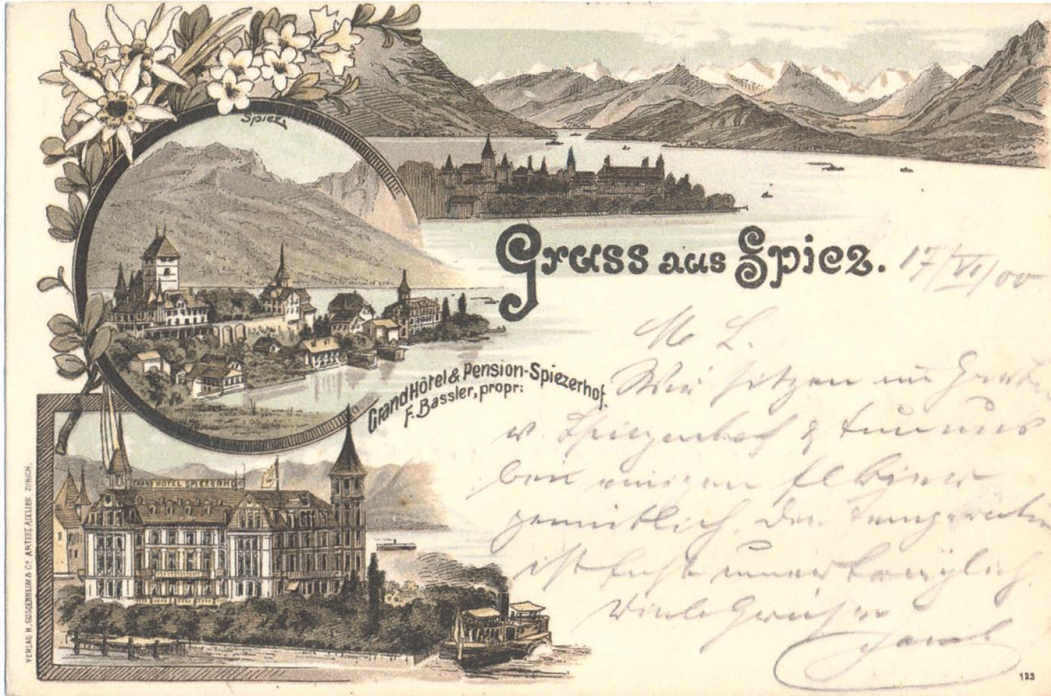 Spiez.
Gruss aus Spiez.
17/VI/00
Grand Hôtel & Pension-Spiezerhof.
F. Bassler, propr:
M. L.
Wir sitzen im
v. Spiezerhof & tun uns
bei einigen fl Bier
gemütlich. Die Temperatur
ist fast unerträglich.
Viele Grüsse
GRAND HOTEL SPIEZERHOF
VERLAG H. GUGGENHEIM & Cº ANTIST. ATELIER ZÜRICH.
123